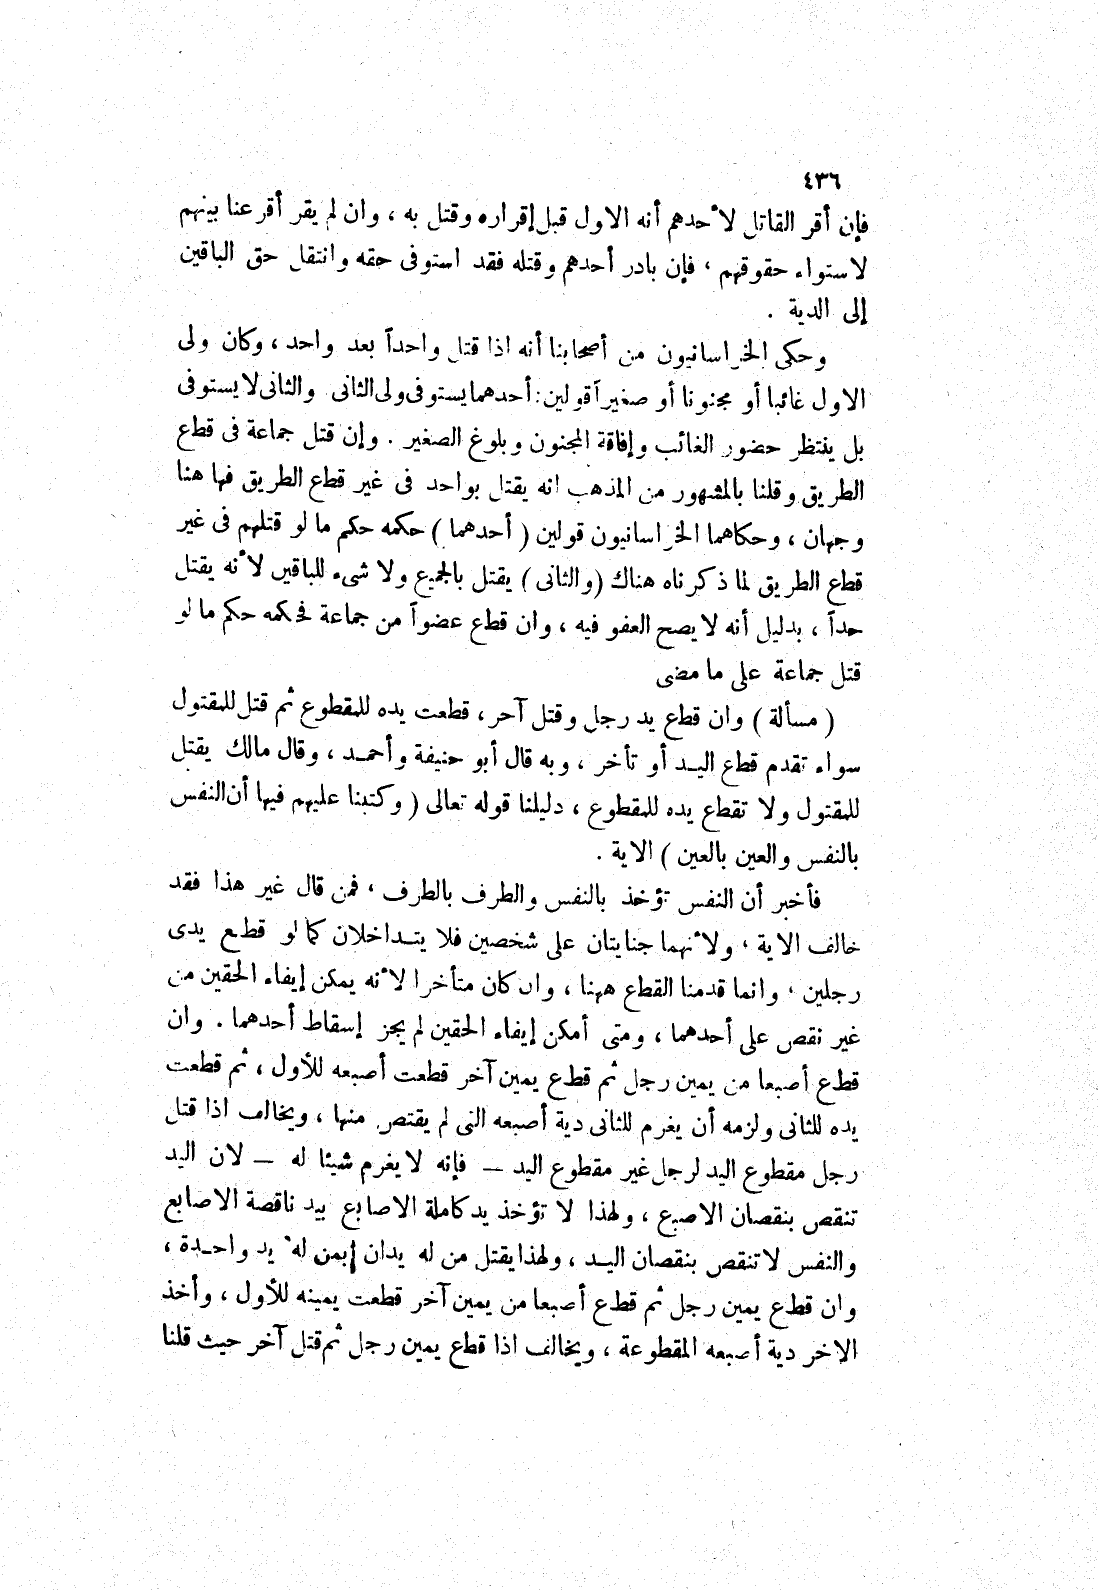 ٤٣٦
فإن أقر القاتل لأحدهم أنه الاول قبل إقراره وقتل به ، وان لم يقر أقرعنا بينهم
لاستواء حقوقهم ، فإن بادر أحدهم وقتله فقد استوفى حقه وانتقل حق الباقين
إلى الدية .
وحكى الخراسانيون من أصحابنا أنه اذا قتل واحداً بعد واحد ، وكان ولى
الاول غائبا أو مجنونا أو صغيراً قولين : أحدهما يستوفى ولى الثانى والثانى لا يستوفى
بل ينتظر حضور الغائب وإفاقة المجنون وبلوغ الصغير . وإن قتل جماعة فى قطاع
الطريق وقلنا بالمشهور من المذهب انه يقتل بواحد فى غير قطاع الطريق فها هنا
وجهان ، وحكاهما الخراسانيون قولين ( أحدهما ) حكمه حكم ما لو قتلهم فى غير
قطاع الطريق لما ذكرناه هناك ( والثانى ) يقتل بالجميع ولا شىء للباقين لأنه يقتل
حداً ، بدليل أنه لا يصح العفو فيه ، وان قطع عضواً من جماعة فحكمه حكم ما لو
قتل جماعة على ما مضى
( مسألة ) وان قطع يد رجل وقتل آخر ، قطعت يده للمقطوع ثم قتل للمقتول
سواء تقدم قطع اليـد أو تأخر ، وبه قال أبو حنيفة وأحمـد ، وقال مالك يقتل
للمقتول ولا تقطع يده للمقطوع ، دليلنا قوله تعالى ( وكتبنا عليهم فيها أن النفس
بالنفس والعين بالعين ) الاية .
فأخبر أن النفس تؤخذ بالنفس والطرف بالطرف ، فمن قال غير هذا فقد
خالف الاية ، ولأنهما جنايتان على شخصين فلا يتـداخلان كما لو قطع يدى
رجلين ، وانما قدمنا القطع ههنا ، وان كان متأخرا لأنه يمكن إيفاء الحقين من
غير نقص على أحدهما ، ومتى أمكن إيفاء الحقين لم يجز إسقاط أحدهما . وان
قطع أصبعا من يمين رجل ثم قطع يمين آخر قطعت أصبعه للأول ، ثم قطعت
يده للثانى ولزمه أن يغرم للثانى دية أصبعه التى لم يقتص منها ، ويخالف اذا قتل
رجل مقطوع اليد لرجل غير مقطوع اليد — فإنه لا يغرم شيئا له — لان اليد
تنقص بنقصان الاصبع ، ولهذا لا تؤخذ يد كاملة الاصابع بيد ناقصة الاصابع
والنفس لا تنقص بنقصان اليـد ، ولهذا يقتل من له يدان بمن له يد واحـدة ،
وان قطع يمين رجل ثم قطع أصبعا من يمين آخر قطعت يمينه للأول ، وأخذ
الاخر دية أصبعه المقطوعة ، ويخالف اذا قطع يمين رجل ثم قتل آخر حيث قلنا